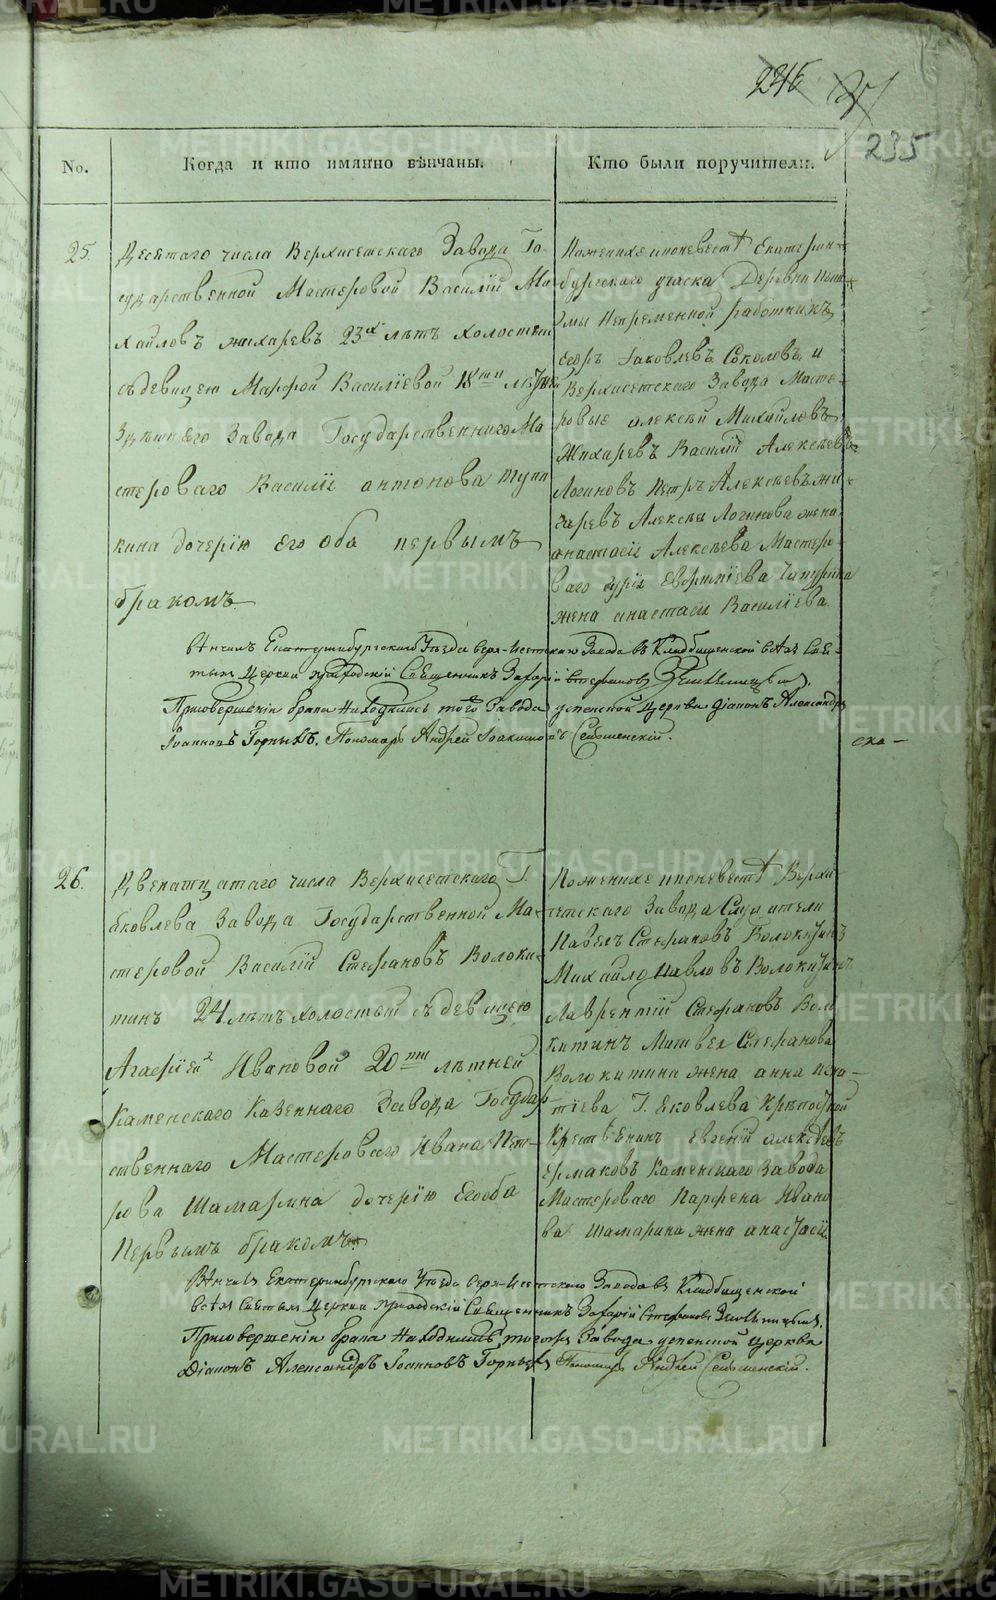 235
No. Когда и кто имянно вѣнчаны. Кто были поручители.
25.
Десятаго числа Верхисетскаго Завода Го-
сударственной Мастеровой Василій Ми
хайловъ жихаревъ 23хъ лѣтъ холостый
съ девицею Марфой Василіевой 18ти
Завода Государственнаго Ма
стероваго Василія антонова
дочерію его оба первымъ
бракомъ
По женихе и по невестѣ Екатерин-
бургскаго Деревни
Непременной работникъ
Егоръ Іаковлевъ Соколовъ, и
Верхисетскаго Завода Масте-
ровые алексѣй Михайловъ
Жихаревъ Василій Алексѣевъ
Логиновъ Петръ Алексѣевъ жи
харевъ Алексѣя Логинова жена
анастасія Алексѣева Мастеро-
ваго
жена анастасія Василіева
вѣнчалъ Екатеринбургскаго Уѣзда верх-Исетскаго Завода въ Кладбищенской всѣхъ Свя-
тыхъ Церкви приходскій Священникъ Захарій Стефановъ
При совершеніи брака находились того Завода успенской Церкви діаконъ Александръ
Іоанновъ Горныхъ. Пономарь Андрей
26.
Двенатцатаго числа Верхисетскаго Г.
Яковлева Завода Государственной Ма-
стеровой Василій Стефановъ Волоки-
тинъ 24 лѣтъ холостый съ девицею
Агафіей Ивановой 20ти лѣтней
Каменскаго Казеннаго Завода Государ
ственнаго Мастероваго Ивана Пет-
рова Шамарина дочерію Его оба
Первымъ бракомъ
По женихе и по невестѣ Верхи-
сетскаго Завода Служители
Павелъ Стефановъ Волокитинъ
Михайло Павловъ Волокитинъ
Лаврентій Стефановъ Воло
китинъ Матвея Стефанова
Волокитина жена анна Игна-
тіева Г. Яковлева Крѣпостной
Крестьенинъ Евгеній алексѣевъ
Ермаковъ Каменскаго Завода
Мастероваго Парфена Ивано
ва Шамарина жена анастасія
Вѣнчалъ Екатеринбургскаго Уѣзда верх-Исетскаго Завода въ Кладбищенской
всѣхъ Святыхъ Церкви приходскій Священникъ Захарій Стефановъ
При совершеніи брака находились того Завода успенской Церкви
Діаконъ Александръ Іоанновъ Горныхъ Пономарь Андрей
METRIKI.GASO-URAL.RU